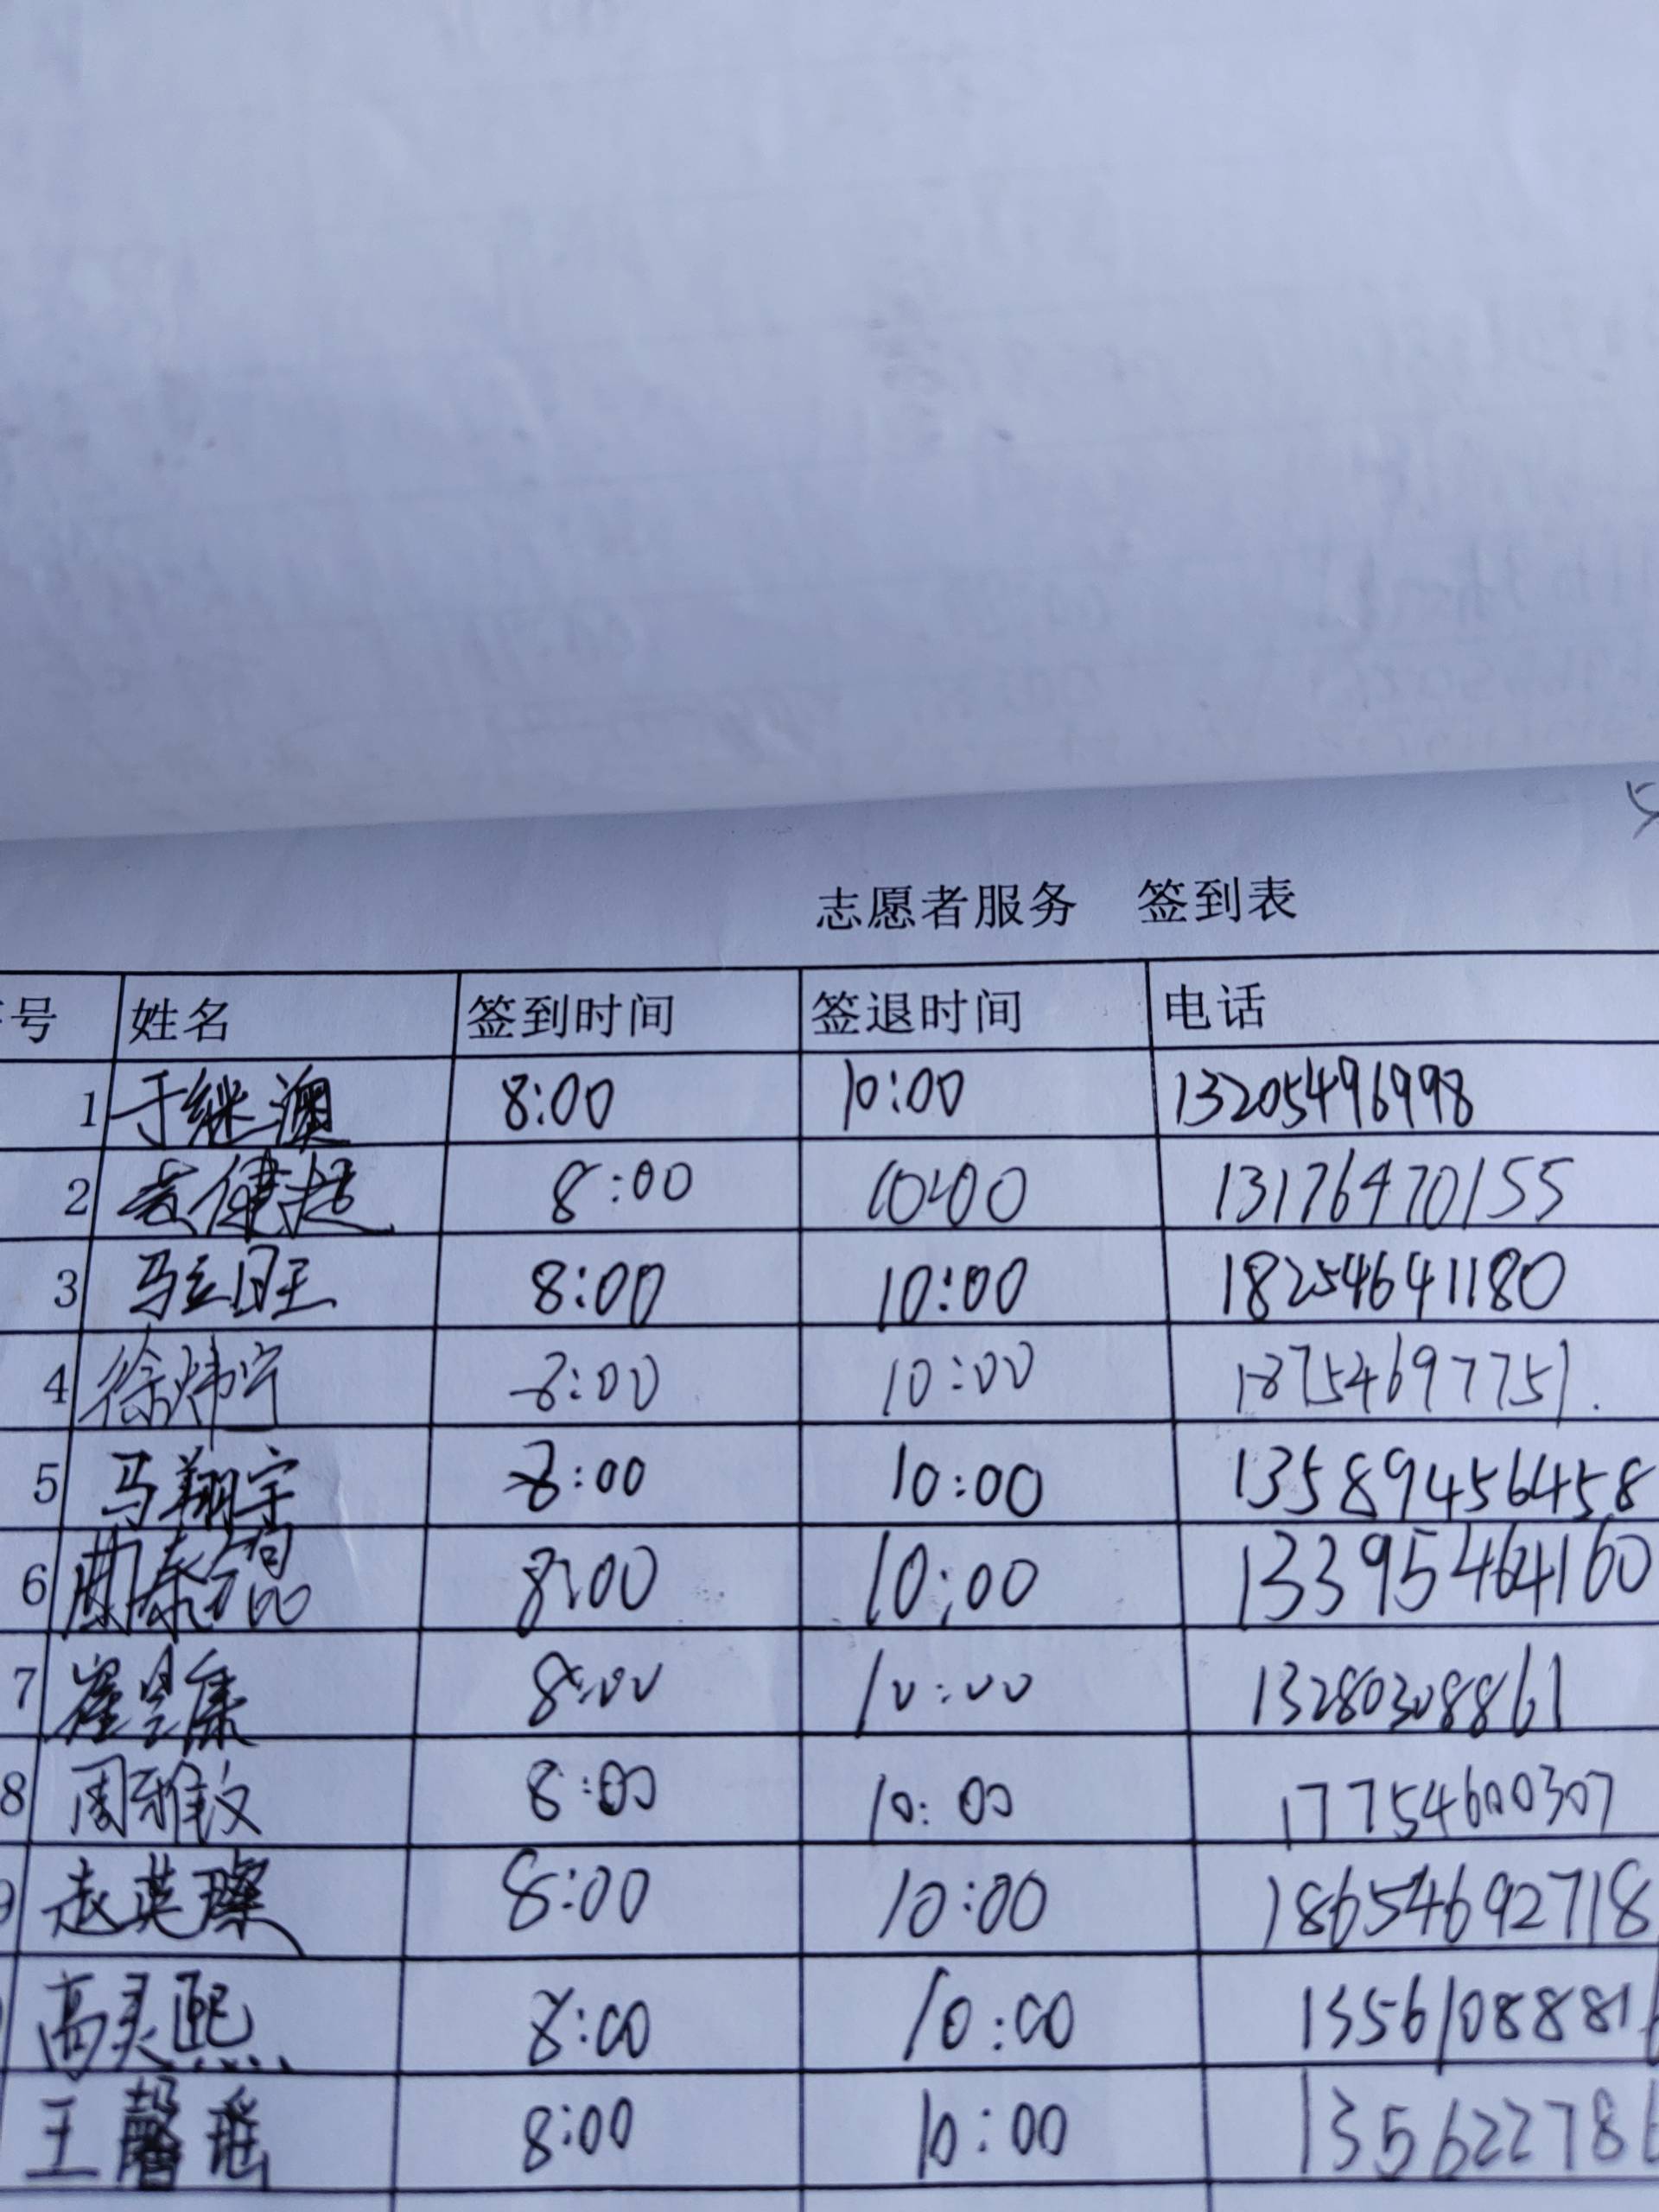 志愿者服务 签到表
号 姓名 签到时间 签退时间 电话
1 于继澳 8:00 10:00 13205496998
2 袁健超 8:00 10:00 13176470155
3 马立旺 8:00 10:00 18254641180
4 徐炜宁 8:00 10:00 18754697751.
5 马翔宇 8:00 10:00 13589456458
6 8:00 10:00 13395464160
7 崔昱康 8:00 10:00 13280308861
8 周雅文 8:00 10:00 17754600307
9 赵英璨 8:00 10:00 18654692718
高灵熙 8:00 10:00 1356108881
王馨瑶 8:00 10:00 135622786